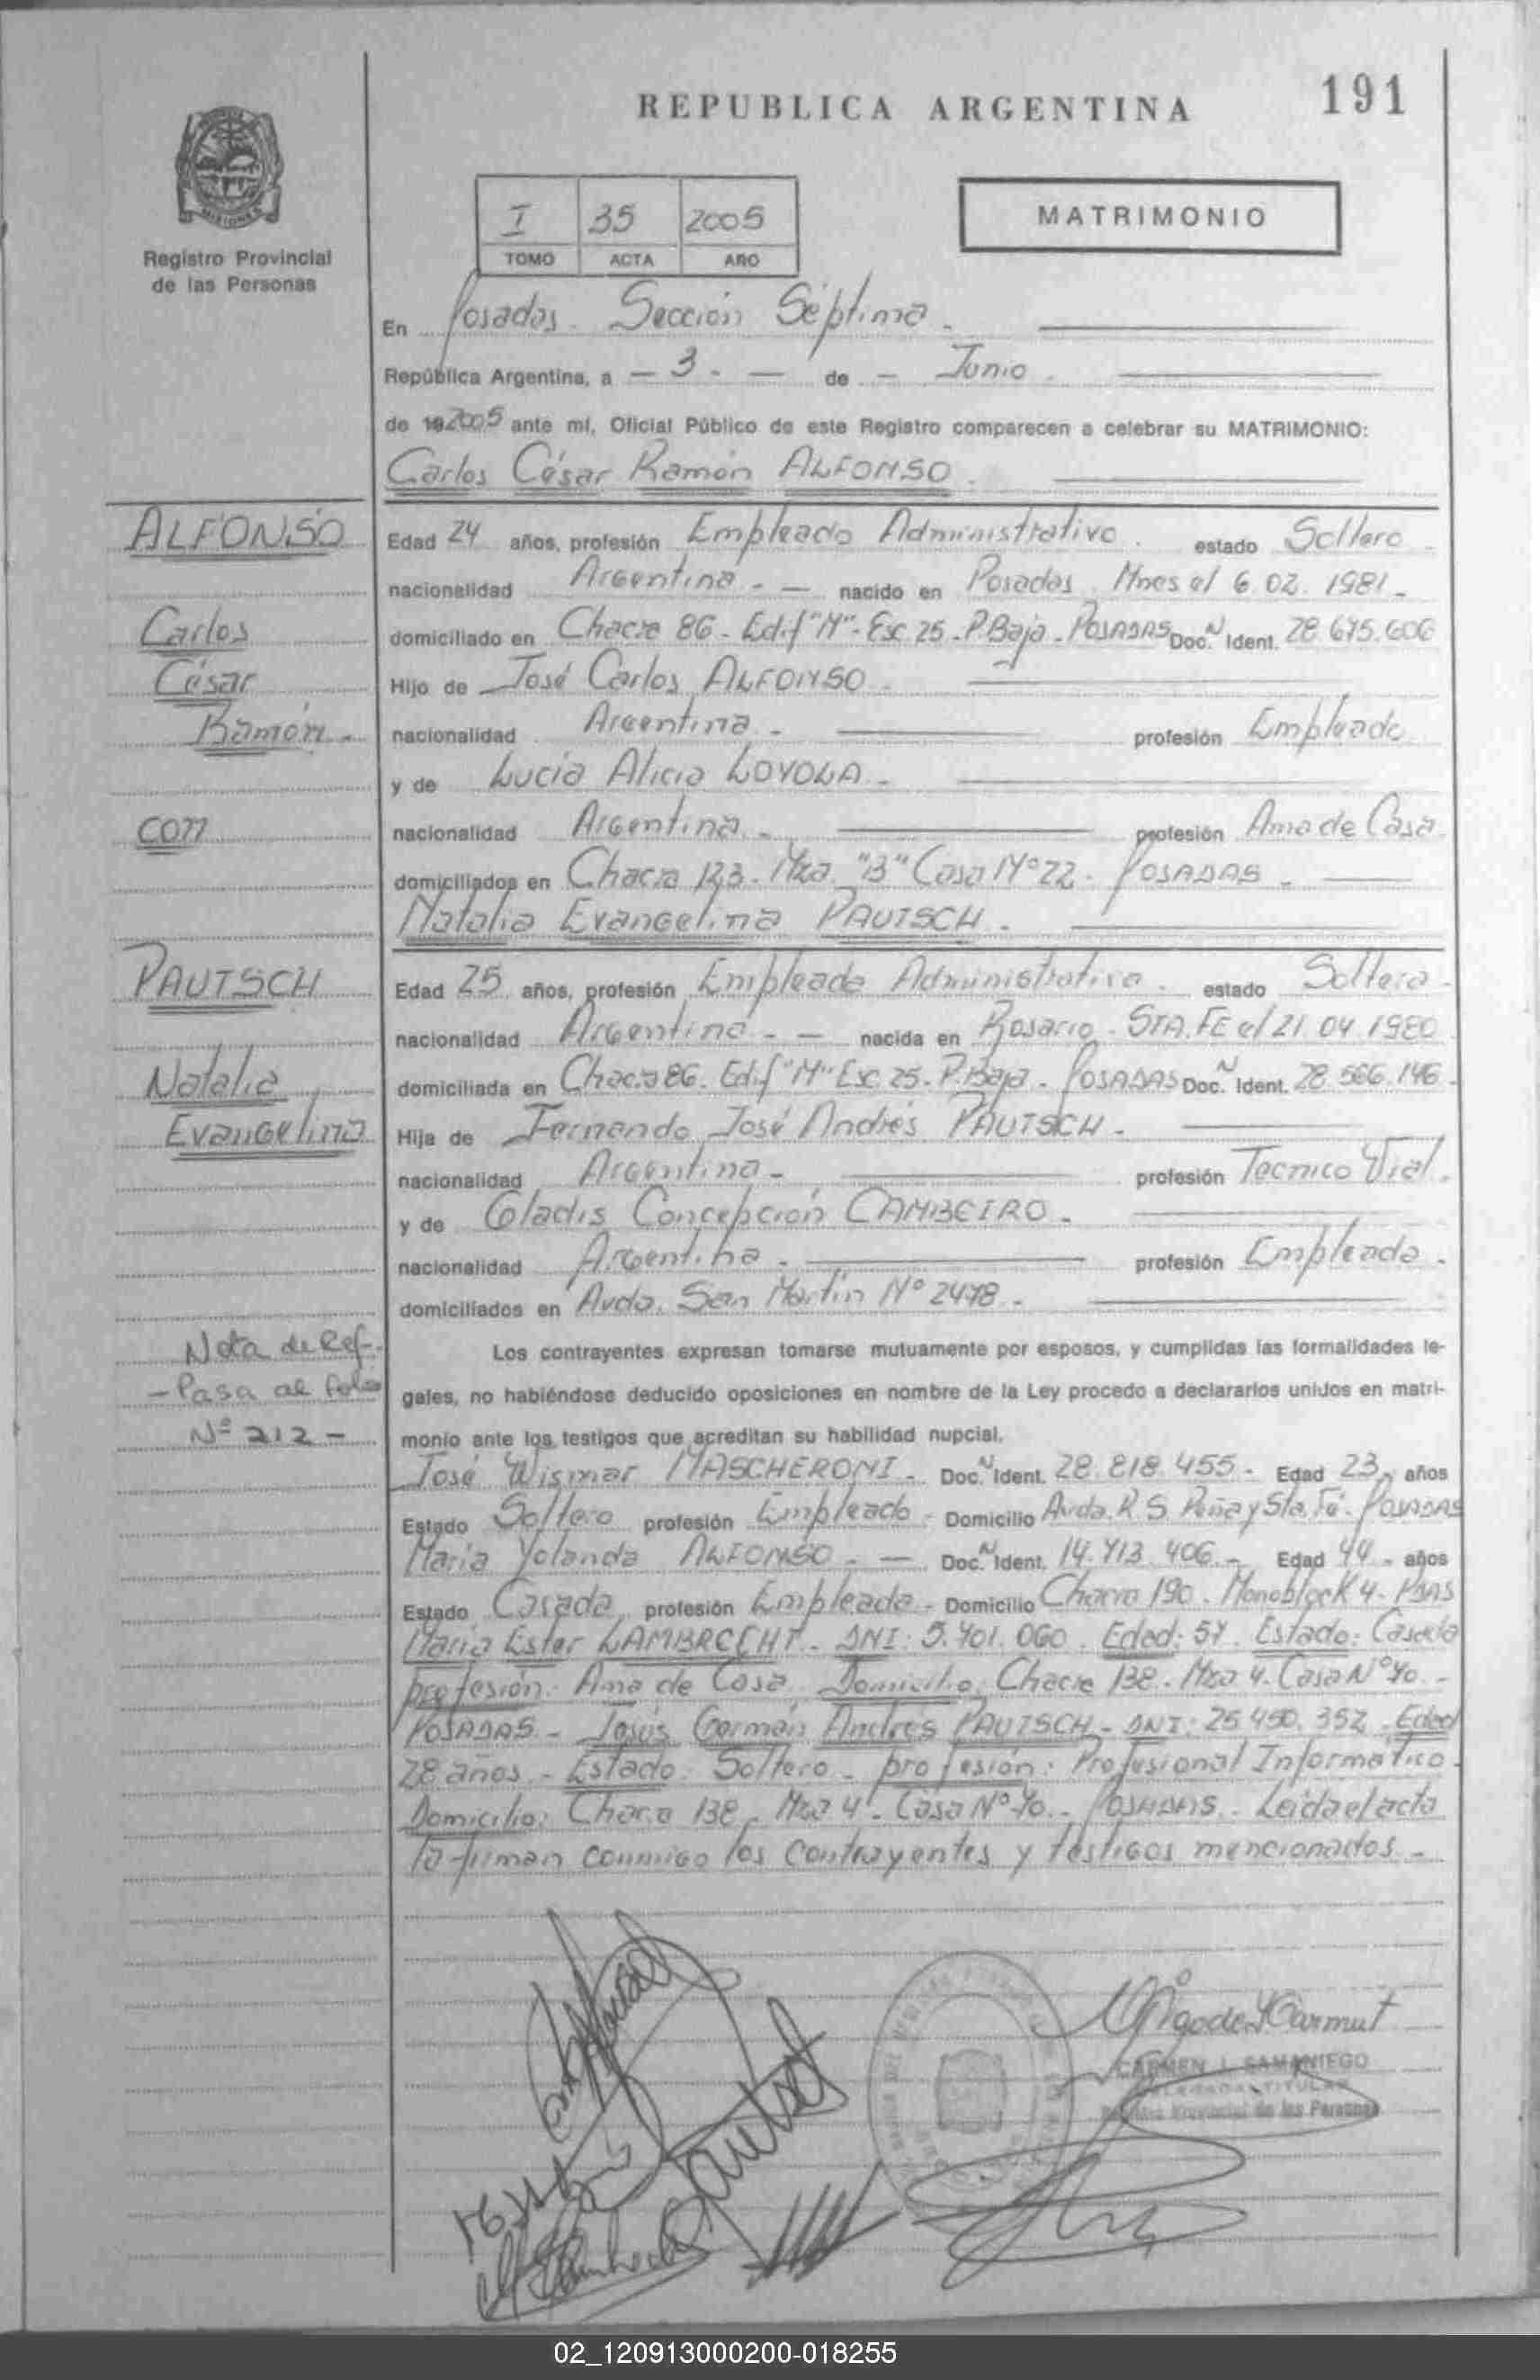 191
REPUBLICA ARGENTINA
MISIONES
Registro Provincial
de las Personas
I 35 2005
TOMO ACTA AÑO
MATRIMONIO
En Posadas. Sección Séptima.
República Argentina, a - 3 - de - Junio.
de 192005 ante mí, Oficial Público de este Registro comparecen a celebrar su MATRIMONIO:
Carlos César Ramón ALFONSO.
ALFONSO
Carlos
César
Ramón.
con
PAUTSCH
Natalia
Evangelina
Nota de Ref.
- Pasa al folio
Nº 212 -
Edad 24 años, profesión Empleado Administrativo. estado Soltero
nacionalidad Argentina. - nacido en Posadas, Mnes el 6.02.1981.-
domiciliado en Chacra 86 - Edif "M" - Esc. 25 - P. Baja - POSADAS Doc. N Ident. 28.675.606
Hijo de José Carlos ALFONSO.
nacionalidad Argentina. profesión Empleado
y de Lucía Alicia LOYOLA.-
nacionalidad Argentina. profesión Ama de Casa
domiciliados en Chacra 123. Mza. "B" Casa Nº 22 - POSADAS -
Natalia Evangelina PAUTSCH.
Edad 25 años, profesión Empleada Administrativa. estado Soltera.
nacionalidad Argentina. - nacida en Rosario - STA. FE el 21.04.1980
domiciliada en Chacra 86. Edif "M" Esc. 25 - P. Baja - POSADAS Doc. N Ident. 28.566.146.
Hija de Fernando José Andrés PAUTSCH.
nacionalidad Argentina. profesión Tecnico Vial.
y de Gladis Concepción CAMBEIRO.
nacionalidad Argentina. profesión Empleada.
domiciliados en Avda. San Martín Nº 2478.
Los contrayentes expresan tomarse mutuamente por esposos, y cumplidas las formalidades le-
gales, no habiéndose deducido oposiciones en nombre de la Ley procedo a declararlos unidos en matri-
monio ante los testigos que acreditan su habilidad nupcial.
José Wismar MASCHERONI. Doc. N Ident. 28.818.455 - Edad 23 años
Estado Soltero profesión Empleado - Domicilio Avda. R. S. Peña y Sta. Fé - POSADAS
María Yolanda ALFONSO. - Doc. N Ident. 14.713.406.- Edad 44 - años
Estado Casada profesión Empleada - Domicilio Chacra 190. Monoblock 4 - PSAS
María Ester LAMBRECHT - DNI: 5.401.060. Edad: 57. Estado: Casada
profesión: Ama de Casa. Domicilio: Chacra 138. Mza 4. Casa Nº 40.-
POSADAS - Jesús Germán Andrés PAUTSCH - DNI: 25.450.352. Edad
28 años - Estado: Soltero - profesión: Profesional Informático
Domicilio: Chacra 138. Mza 4. Casa Nº 40 - POSADAS. Leída el acta
la firman conmigo los contrayentes y testigos mencionados.-
CARMEN I. SAMANIEGO
DELEGADA TITULAR
Registro Provincial de las Personas
02_120913000200-018255